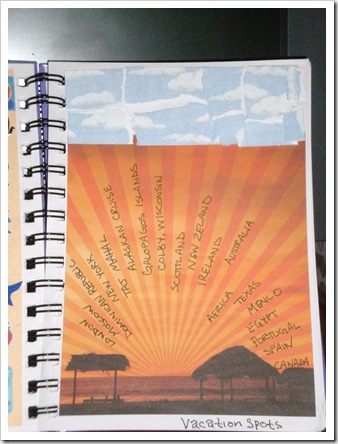 LONDON
MOSCOW
DOMINICAN REPUBLIC
NEW YORK
TAJ MAHAL
ALASKAN CRUISE
GALAPAGOS ISLANDS
COLBY, WISCONSIN
SCOTLAND
NEW ZELAND
IRELAND
AUSTRALIA
AFRICA
TEXAS
MEXICO
EGYPT
PORTUGAL
SPAIN
CANADA
Vacation Spots